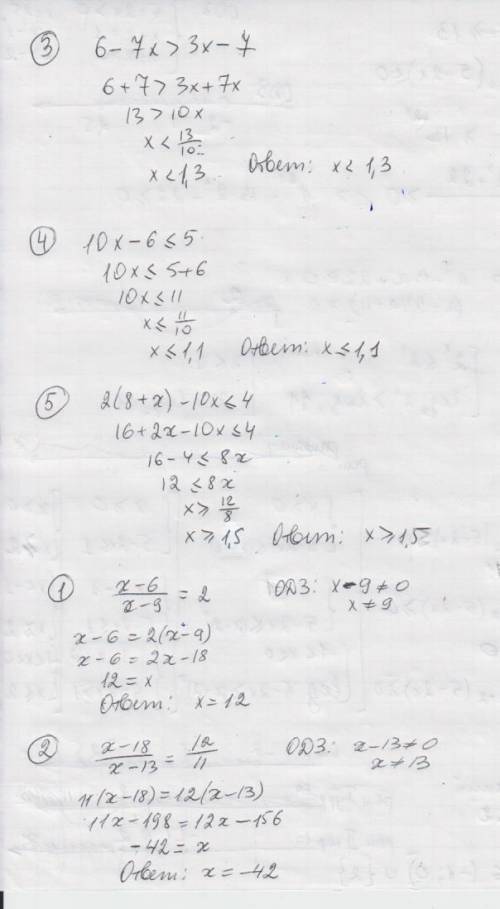 ③ 6 - 7x > 3x - 7
6 + 7 > 3x + 7x
13 > 10x
x < 13/10
x < 1,3 Ответ: x < 1,3
④ 10x - 6 ≤ 5
10x ≤ 5 + 6
10x ≤ 11
x ≤ 11/10
x ≤ 1,1 Ответ: x ≤ 1,1
⑤ 2(8 + x) - 10x ≤ 4
16 + 2x - 10x ≤ 4
16 - 4 ≤ 8x
12 ≤ 8x
x ≥ 12/8
x ≥ 1,5 Ответ: x ≥ 1,5
① (x - 6)/(x - 9) = 2 ОДЗ: x - 9 ≠ 0
x ≠ 9
x - 6 = 2(x - 9)
x - 6 = 2x - 18
12 = x
Ответ: x = 12
② (x - 18)/(x - 13) = 12/11 ОДЗ: x - 13 ≠ 0
x ≠ 13
11(x - 18) = 12(x - 13)
11x - 198 = 12x - 156
-42 = x
Ответ: x = -42